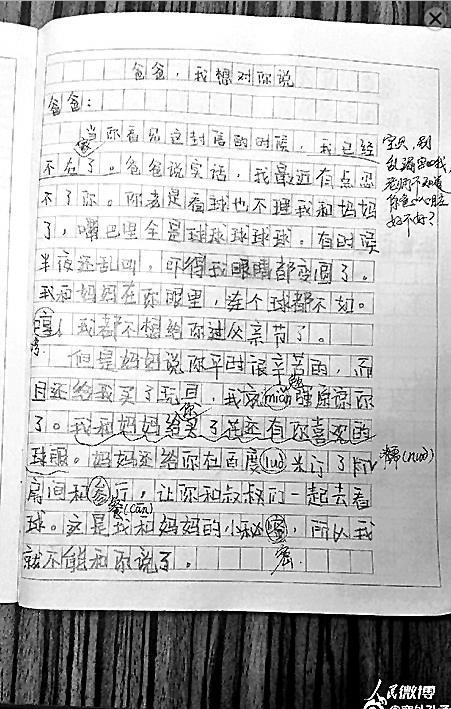 爸爸，我想对你说
爸爸：
当你看见这封信的时候，我已经
不在了。爸爸说实话，我最近有点忍
不了你。你老是看球也不理我和妈妈
了，嘴巴里全是球球球球球。有时候
半夜还乱叫，吓得我眼睛都变圆了。
我和妈妈在你眼里，连个球都不如。
！我都不想给你过父亲节了。
但是妈妈说你平时很辛苦的，而
且还给我买了玩具，我就mian强原谅你
勉
你
了。我和妈妈给买了还有你喜欢的
球服。妈妈还给你在百度luo米订了KTV
房间和厅，让你和叔叔们一起去看
餐(cān)
球。这是我和妈妈的小秘，所以我
密
就不能和你说了。
宝贝，别
老师不知道
你爸心脏
好不好？
糯(nuò)
人民微博